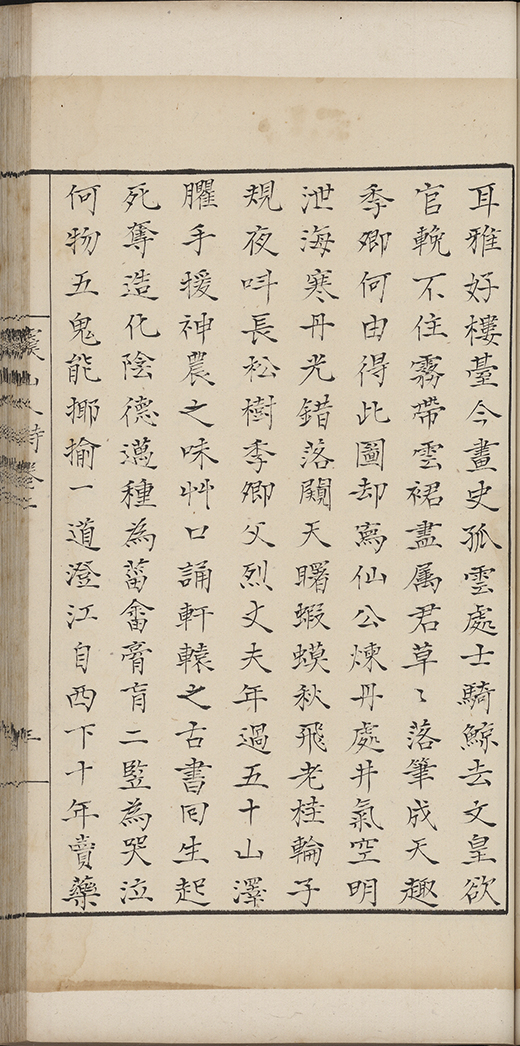 耳雅好樓臺今畫史孤雲處士騎鯨去文皇欲
官輓不住霧帶雲裙盡属君草〻落筆成天趣
季卿何由得此圖却寫仙公煉丹處井氣空明
泄海寒丹光錯落闚天曙蝦蟆秋飛老桂輪子
規夜呌長松樹季卿父烈丈夫年過五十山澤
臞手援神農之味艸口誦軒轅之古書囘生起
死奪造化陰德邁種為菑畬膏肓二竪為哭泣
何物五鬼能揶揄一道澄江自西下十年賣藥